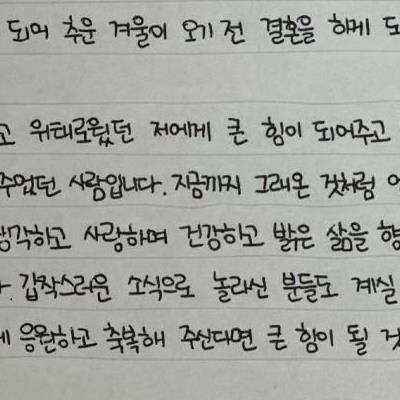 되어 추운 겨울이 오기 전 결혼을 하게 되
고 위태로웠던 저에게 큰 힘이 되어주고
주었던 사람입니다. 지금까지 그래온 것처럼
생각하고 사랑하며 건강하고 밝은 삶을 향
. 갑작스러운 소식으로 놀라신 분들도 계실
게 응원하고 축복해 주신다면 큰 힘이 될 것